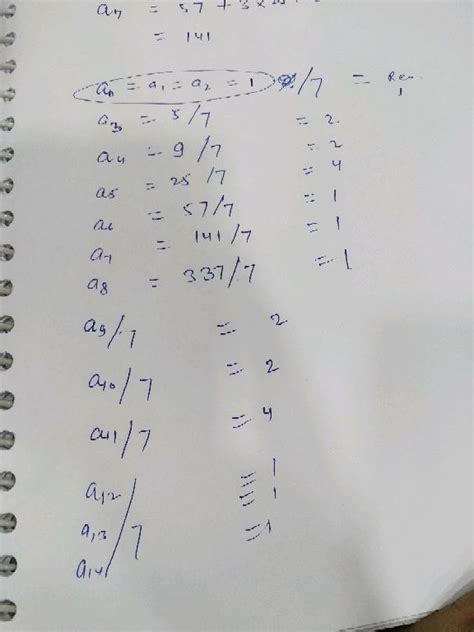 a7 = 57 +
= 141
a0 = a1 = a2 = 1 /7 = Rem 1
a3 = 5/7 = 2
a4 = 9/7 = 2
a5 = 25/7 = 4
a6 = 57/7 = 1
a7 = 141/7 = 1
a8 = 337/7 = 1
a9/7 = 2
a10/7 = 2
a11/7 = 4
a12 = 1
a13 /7 = 1
a14 = 1